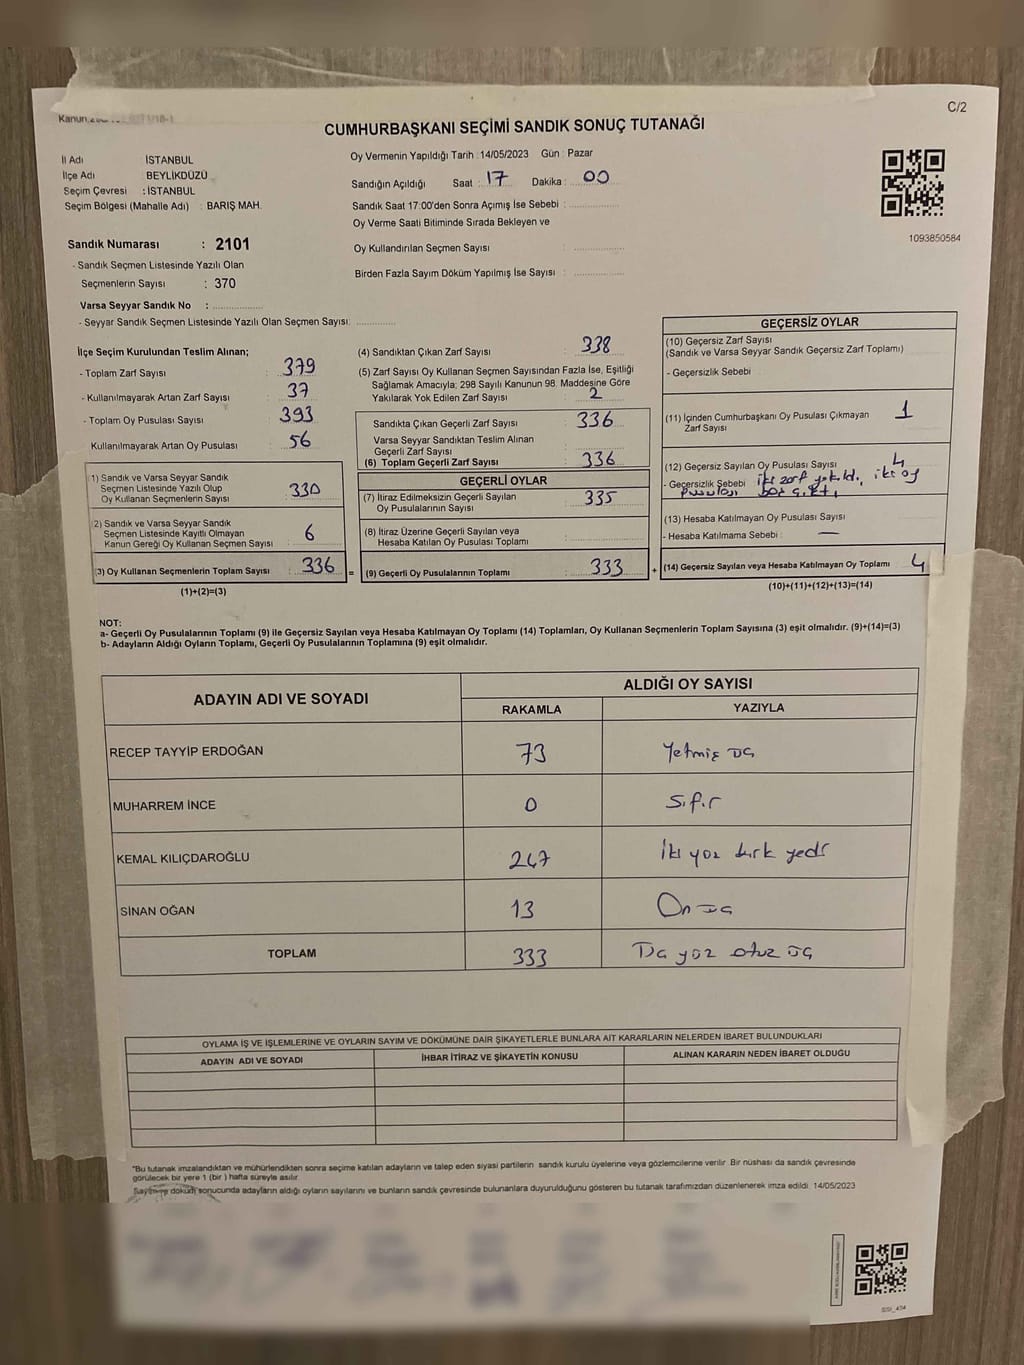 C/2
CUMHURBAŞKANI SEÇİMİ SANDIK SONUÇ TUTANAĞI
İl Adı İSTANBUL
İlçe Adı BEYLİKDÜZÜ
Seçim Çevresi : İSTANBUL
Seçim Bölgesi (Mahalle Adı) : BARIŞ MAH.
Sandık Numarası : 2101
- Sandık Seçmen Listesinde Yazılı Olan
Seçmenlerin Sayısı : 370
Varsa Seyyar Sandık No :
- Seyyar Sandık Seçmen Listesinde Yazılı Olan Seçmen Sayısı:
Oy Vermenin Yapıldığı Tarih : 14/05/2023 Gün : Pazar
Sandığın Açıldığı Saat : 17 Dakika : 00
Sandık Saat 17:00'den Sonra Açımış İse Sebebi :
Oy Verme Saati Bitiminde Sırada Bekleyen ve
Oy Kullandırılan Seçmen Sayısı :
Birden Fazla Sayım Döküm Yapılmış İse Sayısı :
1093850584
İlçe Seçim Kurulundan Teslim Alınan;
- Toplam Zarf Sayısı : 379
- Kullanılmayarak Artan Zarf Sayısı : 37
- Toplam Oy Pusulası Sayısı : 393
Kullanılmayarak Artan Oy Pusulası : 56
1) Sandık ve Varsa Seyyar Sandık
Seçmen Listesinde Yazılı Olup
Oy Kullanan Seçmenlerin Sayısı : 330
2) Sandık ve Varsa Seyyar Sandık
Seçmen Listesinde Kayıtlı Olmayan
Kanun Gereği Oy Kullanan Seçmen Sayısı : 6
3) Oy Kullanan Seçmenlerin Toplam Sayısı : 336 =
(1)+(2)=(3)
(4) Sandıktan Çıkan Zarf Sayısı : 338
(5) Zarf Sayısı Oy Kullanan Seçmen Sayısından Fazla İse, Eşitliği
Sağlamak Amacıyla; 298 Sayılı Kanunun 98. Maddesine Göre
Yakılarak Yok Edilen Zarf Sayısı : 2
Sandıkta Çıkan Geçerli Zarf Sayısı : 336
Varsa Seyyar Sandıktan Teslim Alınan
Geçerli Zarf Sayısı :
(6) Toplam Geçerli Zarf Sayısı : 336
GEÇERLİ OYLAR
(7) İtiraz Edilmeksizin Geçerli Sayılan
Oy Pusulalarının Sayısı : 335
(8) İtiraz Üzerine Geçerli Sayılan veya
Hesaba Katılan Oy Pusulası Toplamı :
(9) Geçerli Oy Pusulalarının Toplamı : 333 +
GEÇERSİZ OYLAR
(10) Geçersiz Zarf Sayısı
(Sandık ve Varsa Seyyar Sandık Geçersiz Zarf Toplamı)
- Geçersizlik Sebebi :
(11) İçinden Cumhurbaşkanı Oy Pusulası Çıkmayan 1
Zarf Sayısı
(12) Geçersiz Sayılan Oy Pusulası Sayısı : 4
- Geçersizlik Sebebi : iki zarf yakıldı, iki oy
pusulası boş çıktı
(13) Hesaba Katılmayan Oy Pusulası Sayısı
- Hesaba Katılmama Sebebi : —
(14) Geçersiz Sayılan veya Hesaba Katılmayan Oy Toplamı : 4
(10)+(11)+(12)+(13)=(14)
NOT:
a- Geçerli Oy Pusulalarının Toplamı (9) ile Geçersiz Sayılan veya Hesaba Katılmayan Oy Toplamı (14) Toplamları, Oy Kullanan Seçmenlerin Toplam Sayısına (3) eşit olmalıdır. (9)+(14)=(3)
b- Adayların Aldığı Oyların Toplamı, Geçerli Oy Pusulalarının Toplamına (9) eşit olmalıdır.
ADAYIN ADI VE SOYADI ALDIĞI OY SAYISI
RAKAMLA YAZIYLA
RECEP TAYYİP ERDOĞAN 73 Yetmiş üç
MUHARREM İNCE 0 Sıfır
KEMAL KILIÇDAROĞLU 247 İki yüz kırk yedi
SİNAN OĞAN 13 On üç
TOPLAM 333 Üç yüz otuz üç
OYLAMA İŞ VE İŞLEMLERİNE VE OYLARIN SAYIM VE DÖKÜMÜNE DAİR ŞİKAYETLERLE BUNLARA AİT KARARLARIN NELERDEN İBARET BULUNDUKLARI
ADAYIN ADI VE SOYADI İHBAR İTİRAZ VE ŞİKAYETİN KONUSU ALINAN KARARIN NEDEN İBARET OLDUĞU
"Bu tutanak imzalandıktan ve mühürlendikten sonra seçime katılan adayların ve talep eden siyasi partilerin sandık kurulu üyelerine veya gözlemcilerine verilir. Bir nüshası da sandık çevresinde
görülecek bir yere 1 (bir) hafta süreyle asılır.
Sayım ve döküm sonucunda adayların aldığı oyların sayılarını ve bunların sandık çevresinde bulunanlara duyurulduğunu gösteren bu tutanak tarafımızdan düzenlenerek imza edildi. 14/05/2023
SSI_434